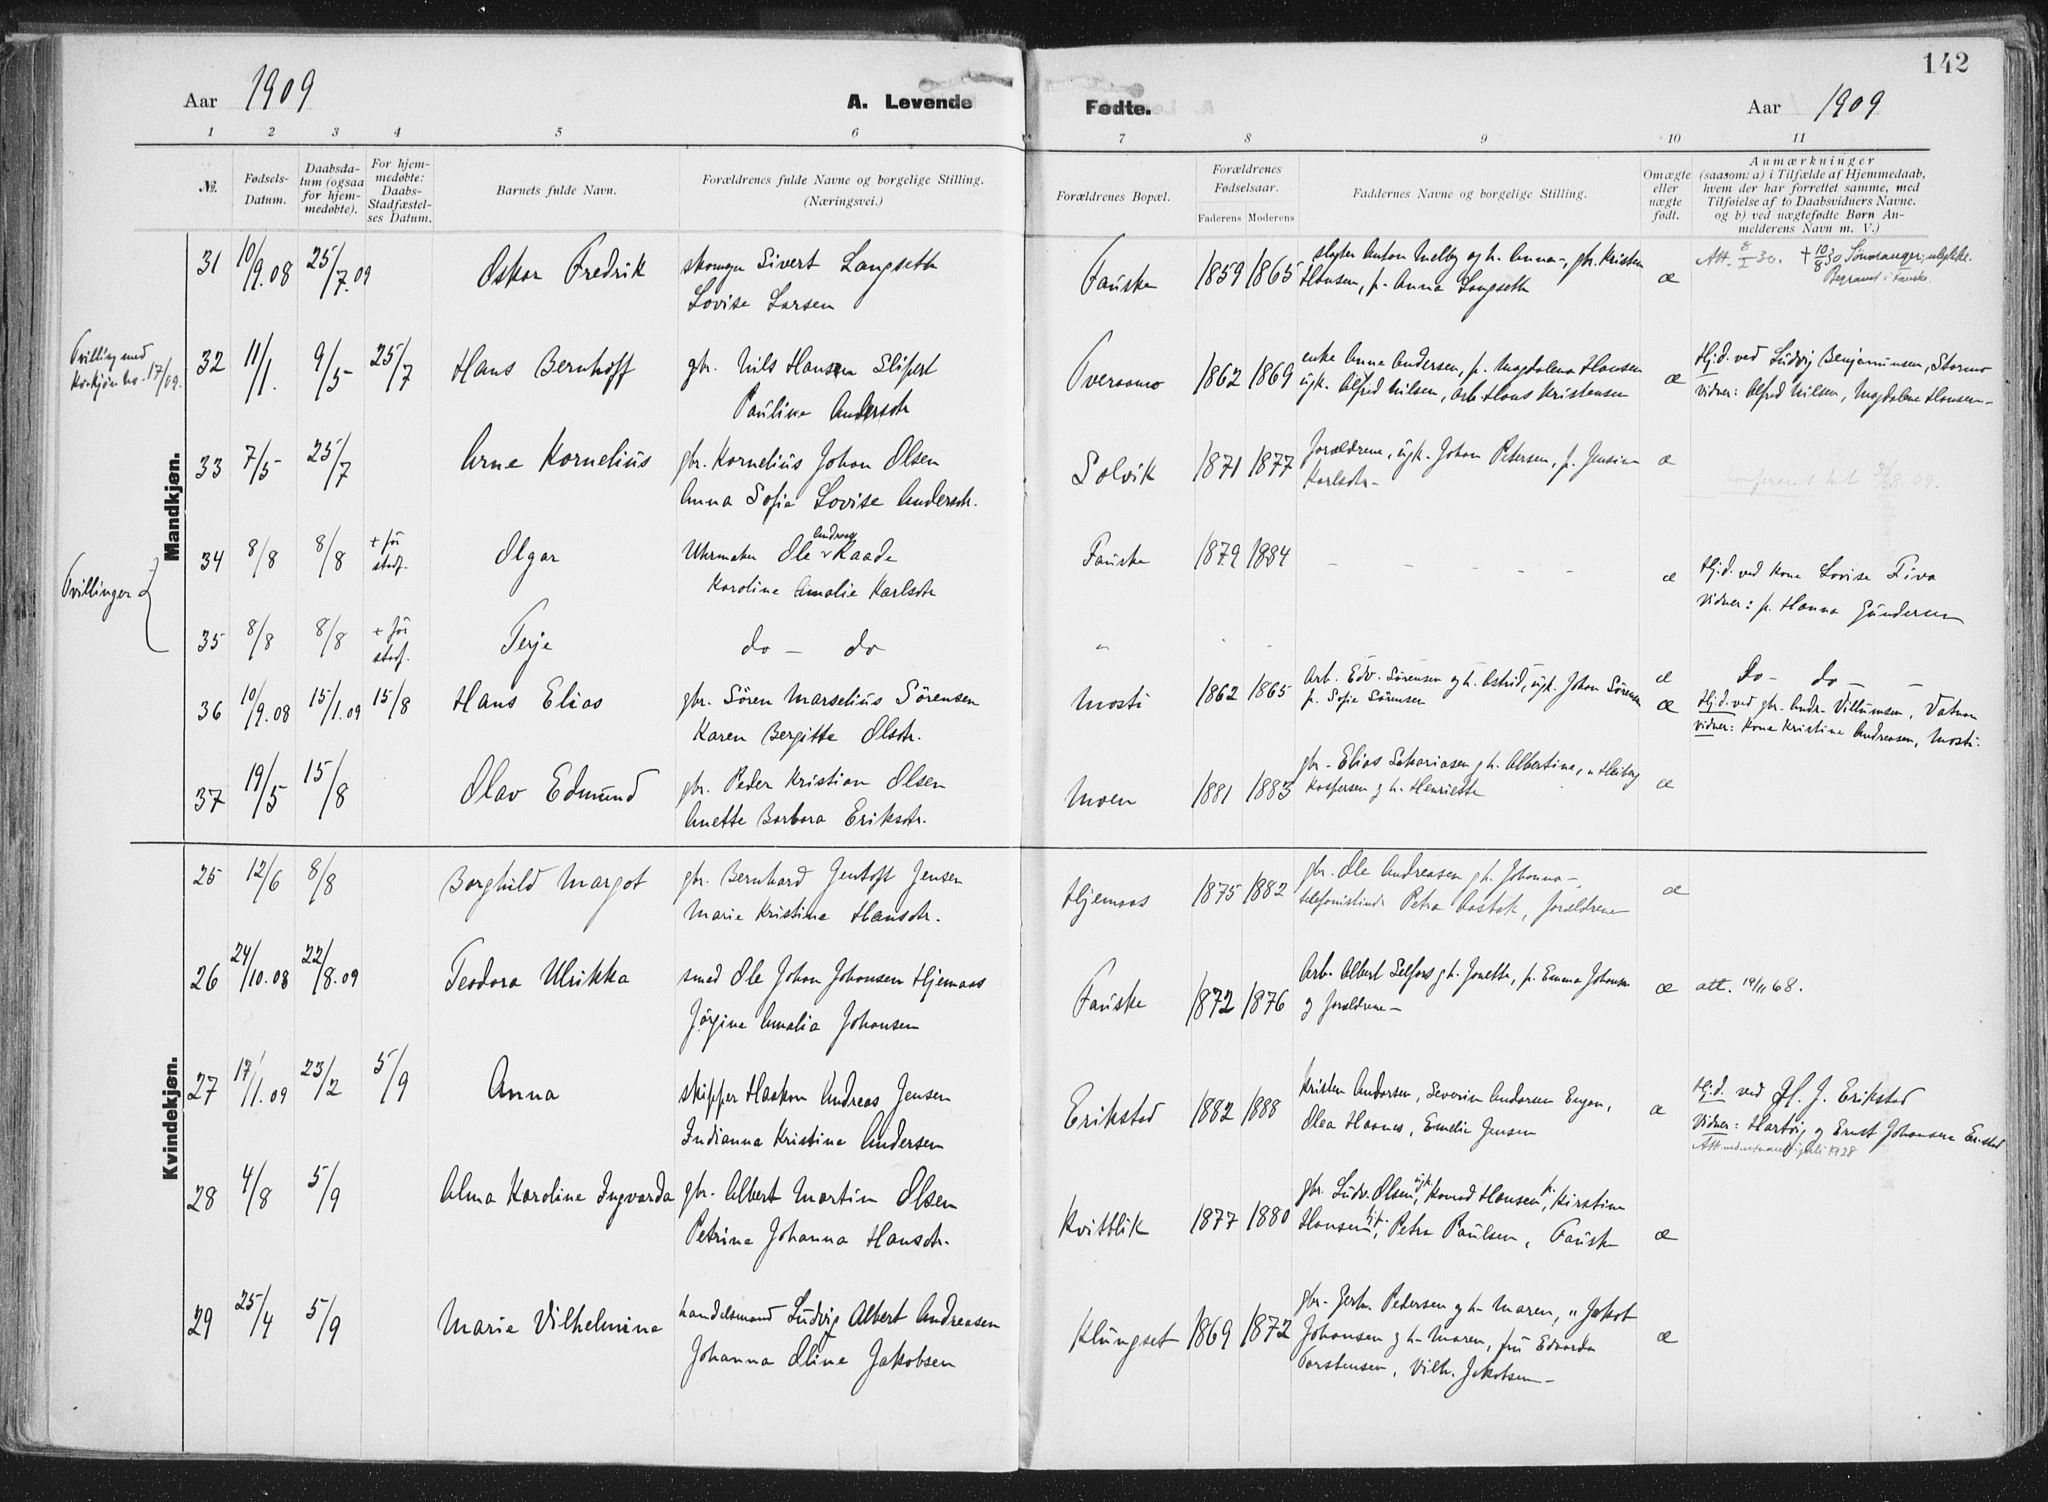 142
Aar 1909 A. Levende Fødte. Aar 1909
1 2 3 4 5 6 7 8 9 10 11
№.
Fødsels-
Datum.
Daabsda-
tum (ogsaa
for hjem-
medøbte).
For hjem-
medøbte:
Daabs-
Stadfæstel-
ses Datum.
Barnets fulde Navn.
Forældrenes fulde Navne og borgelige Stilling.
(Næringsvei.)
Forældrenes Bopæl.
Forældrenes
Fødselsaar.
Faderens Moderens
Faddernes Navne og borgelige Stilling.
Omægte
eller
uægte
født.
Anmærkninger
(saasom: a) i Tilfælde af Hjemmedaab,
hvem der har forrettet samme, med
Tilføielse af to Daabsvidners Navne.
og b) ved uægtefødte Børn An-
melderens Navn m. V.)
Mandkjøn.
31 10/9.08 25/7.09 Oskar Fredrik
Sivert Langseth
Lovise Larsen
Fauske 1859 1865
Anton Melby og h. Anna-, gbr. Kristen
Hansen, p. Anna Langseth
æ
Att. 8/I 30. + 10/8 30
Begravet i Fauske
Tvilling med
17/09.
32 11/1. 9/5 25/7 Hans Bernhoff
gbr. Nils Hansen
Pauline Andersdtr
Tveraamo 1862 1869
enke Anne Andersen, p. Magdalena Hansen
ugk. Alfred Nilsen, arb. Hans Kristensen
æ
Hj.d. ved Ludvig Benjaminsen, Stormo
Vidner: Alfred Nilsen, Magdalene Hansen-
33 7/5 25/7 Arne Kornelius
gbr. Kornelius Johan Olsen
Anna Sofie Lovise Andersdtr.
Solvik 1871 1877
Forældrene, ugk. Johan Petersen, p. Jensine
Karlsdtr-
æ
Tvillinger
34 8/8 8/8 + før
stadf.
Olgar
Andreas
Uhrmaker Ole Raade
Karoline Amalie Karlsdtr
Fauske 1879 1884 - - - - - æ
Hj.d. ved kone Lovise Five
Vidner: p. Hanna Gundersen
35 8/8 8/8 + før
stadf.
Terje do - do " æ do - do -
36 10/9.08 15/1.09 15/8 Hans Elias
gbr. Søren Marselius Sørensen
Karen Bergitte Olsdtr.
Mosti 1862 1865
Arb. Edv. Sørensen og h. Astrid, ugk. Johan Sørensen
p. Sofie Sørensen
æ
Hj.d. ved gbr. Andr. Villumsen, Vatnan
vidner: Kone Kristine Andreasen, Mosti.
37 19/5 15/8 Olav Edmund
gbr. Peder Kristian Olsen
Anette Barbara Eriksdtr.
Moen 1881 1883
gbr. Elias Sakariasen og h. Albertine,
Kaspersen og h. Henriette
æ
Kvindekjøn.
25 12/6 8/8 Borghild Margot
gbr. Bernhard Jentoft Jensen
Marie Kristine Hansdtr.
Hjemaas 1875 1882
gbr. Ole Andreasen og h. Johanna-,
telefonistinde Petra Aastok, forældrene
æ
26 24/10.08 22/8.09 Teodora Ulrikka
smed Ole Johan Johansen Hjemaas
Jørgine Amalia Johansen
Fauske 1872 1876
Arb. Albert Selfors og h. Jonette, p. Emma Johansen
og forældrene-
æ att. 19/11 68.
27 17/1.09 23/2 5/9 Anna
skipper Haakon Andreas Jensen
Indianna Kristine Andersen
Erikstad 1882 1888
Kristen Andersen, Severin Andersen Engan,
Olea Haanes, Emelie Jensen
æ
Hj.d. ved J. Erikstad
Vidner: Hartvig og Ernst Johansen Erikstad
28 4/8 5/9 Alma Karoline Ingvarda
gbr. Albert Martin Olsen
Petrine Johanna Hansdtr.
Kvitblik 1877 1880
gbr. Ludv. Olsen, ugk. Konrad Hansen, p. Kirstine
Hansen, Petra Paulsen, Fauske
æ
29 25/4 5/9 Marie Vilhelmine
handelsmand Ludvig Albert Andreasen
Johanna Oline Jakobsen
Klungset 1869 1872
gbr. Pedersen og h. Maren, " Jakob
Johansen og h. Maren, fru Edvarda
Torstensen, Vilh. Jakobsen-
æ